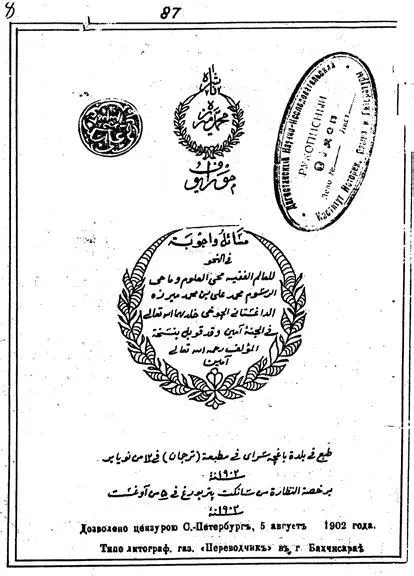 8
87
محمد ميرزه
Дагестанский Научно-Исследовательский
Институт Истории, Языка и
РУКОПИСНЫЙ
ФОНД
Дело №
Лист
مسائل واجوبة
في النحو
للعالم الفقيه محي العلوم وماحي
الرسوم محمد علي بن محمد ميرزه
الداغستاني الچوخي خلدهما الله تعالى
في الجنة آمين وقد قوبل بنسخة
المؤلف رحمه الله تعالى
آمين
طبع في بلدة باغچه سراي في مطبعة (ترجمان) في ١٢ من نويابر
١٩٠٢ سنة
برخصة النظارة من سانكت پتربورغ في ٥ من آوغست
١٩٠٢ سنة
Дозволено цензурою С.-Петербургъ, 5 августъ 1902 года.
Типо литограф. газ. «Переводчикъ» въ г. Бахчисараѣ